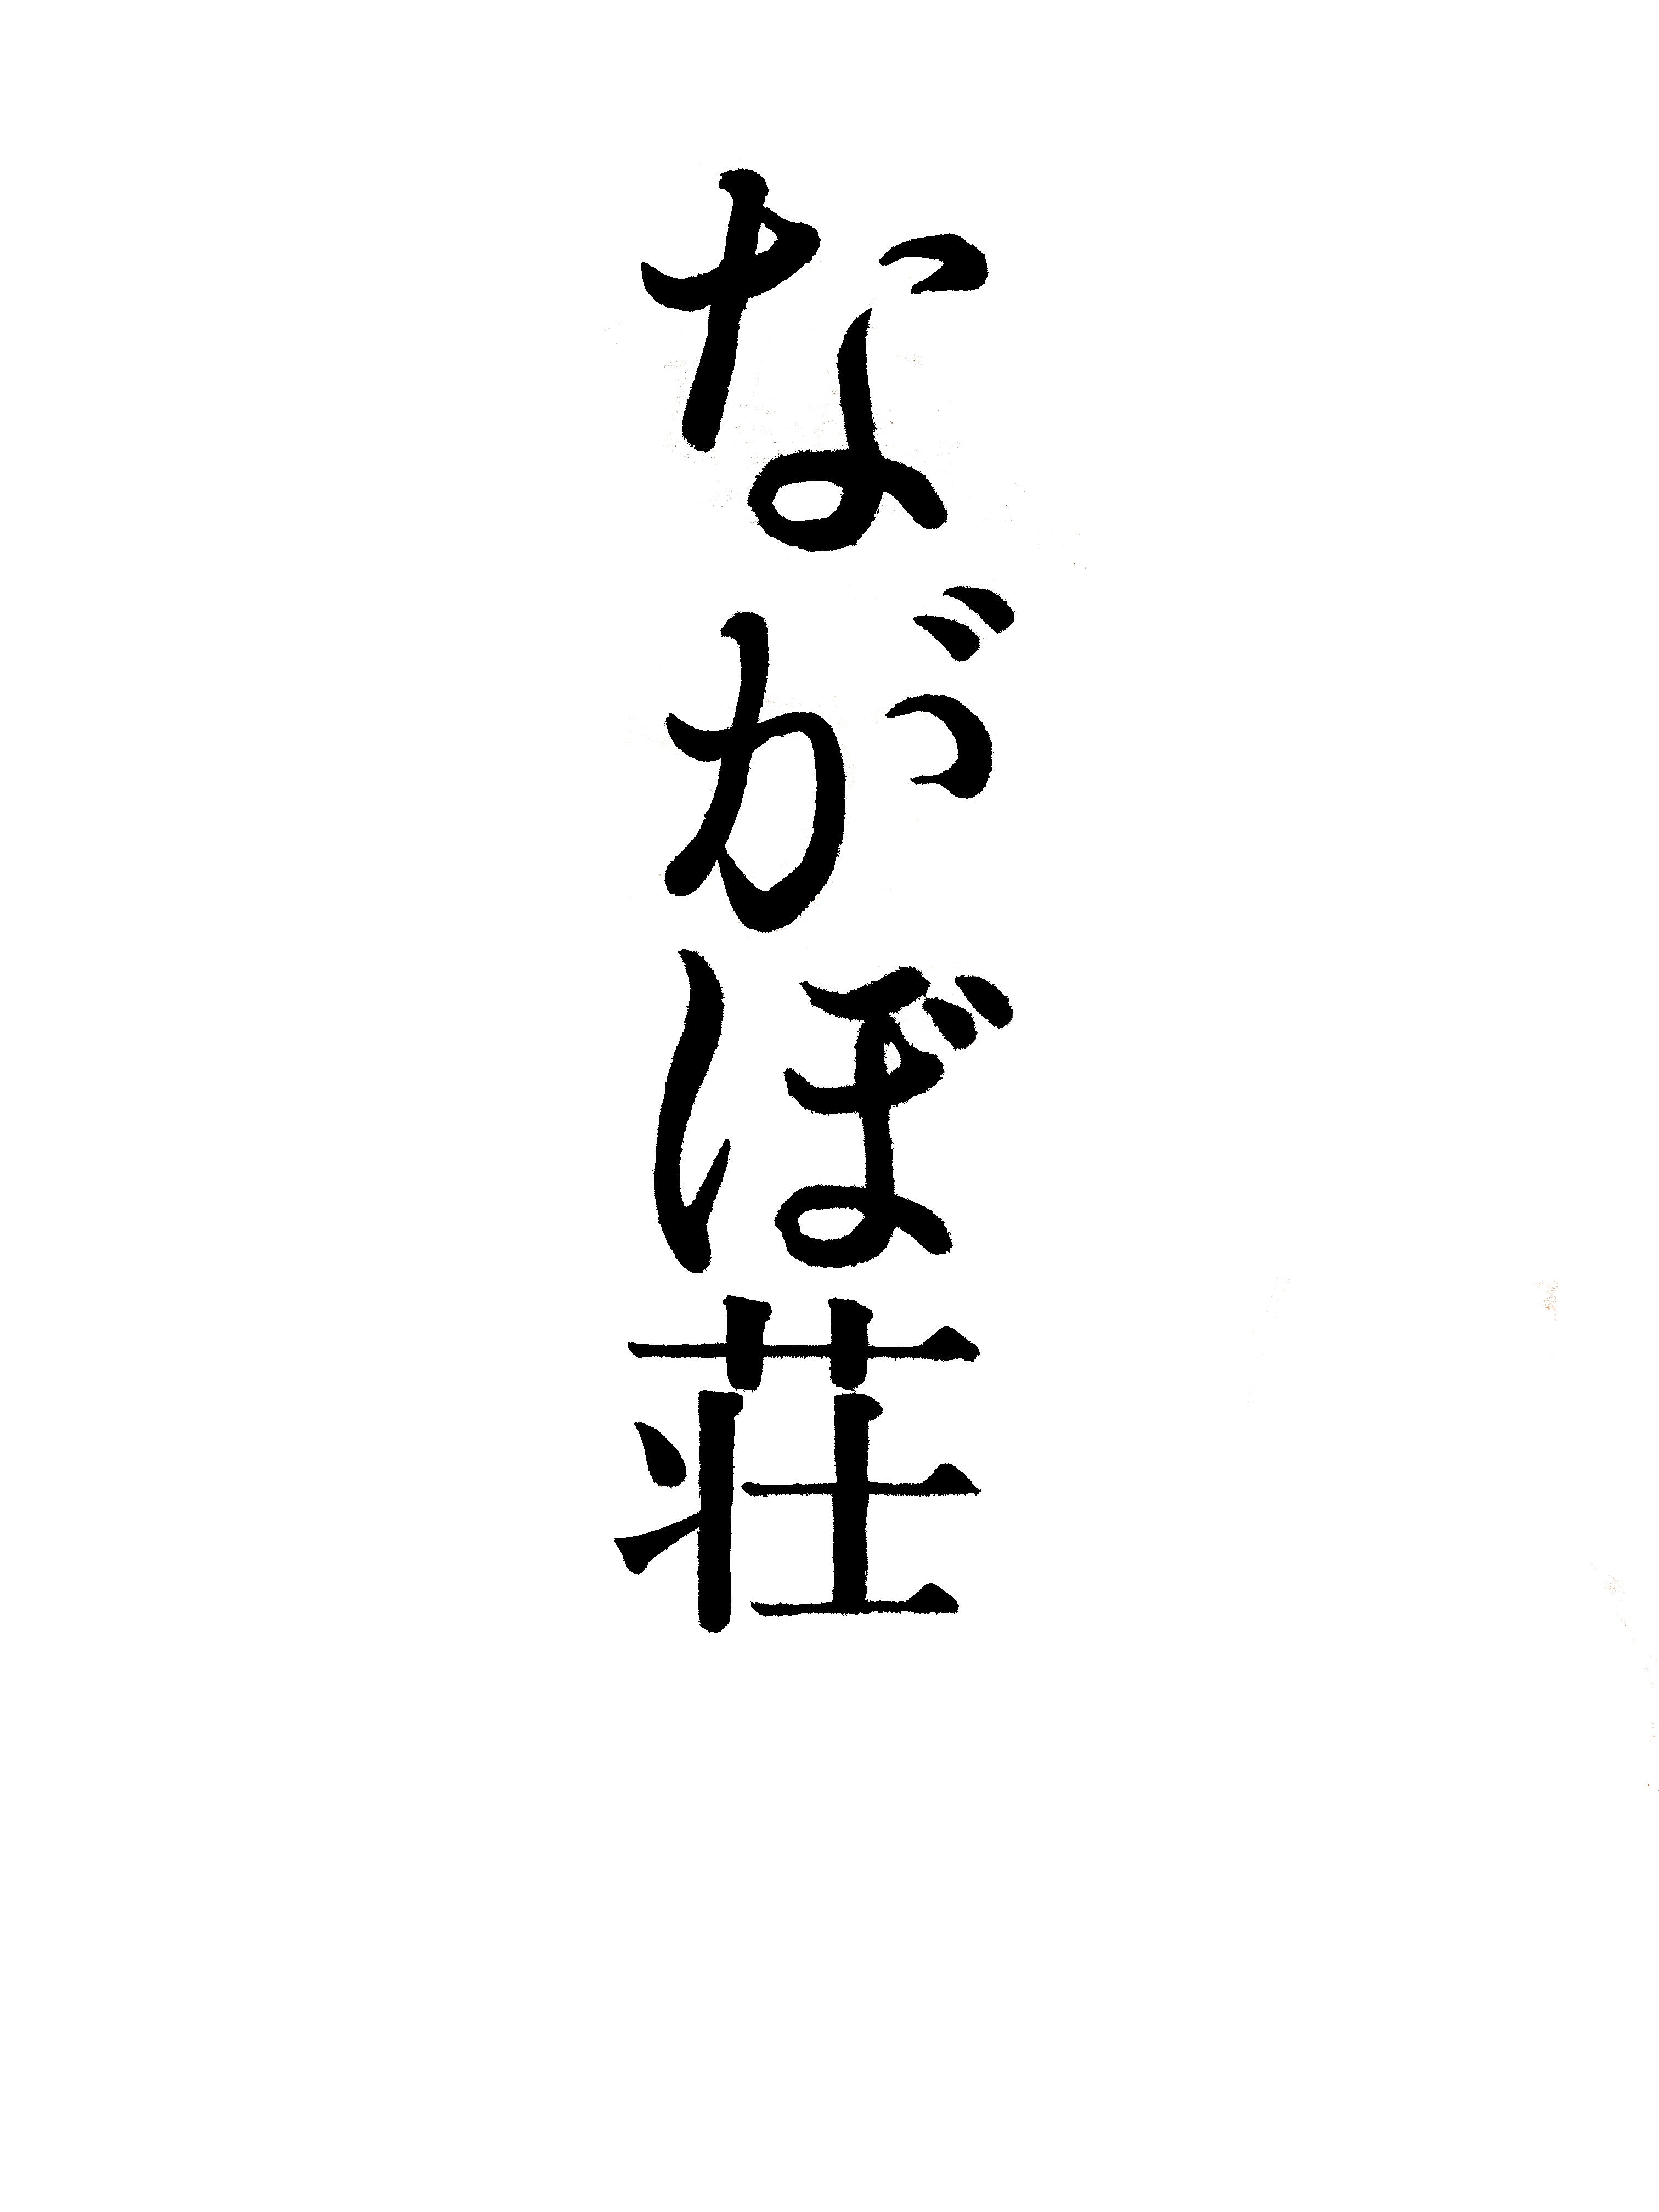 ながぼ荘